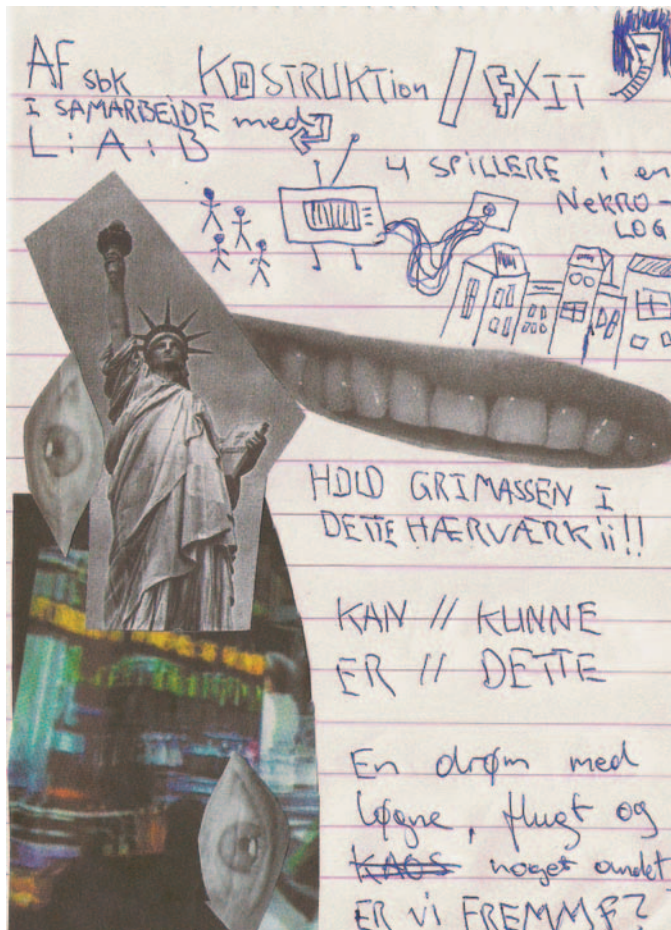 AF sbk KOSTRUKTion / EXIT
I SAMARBEJDE med
L : A : B
4 SPILLERE i en
NEKRO-
LOG
HOLD GRIMASSEN I
DETTE HÆRVÆRK ¡¡!!
KAN // KUNNE
ER // DETTE
En drøm med
løgne, flugt og
KAOS noget andet
ER Vi FREMME?